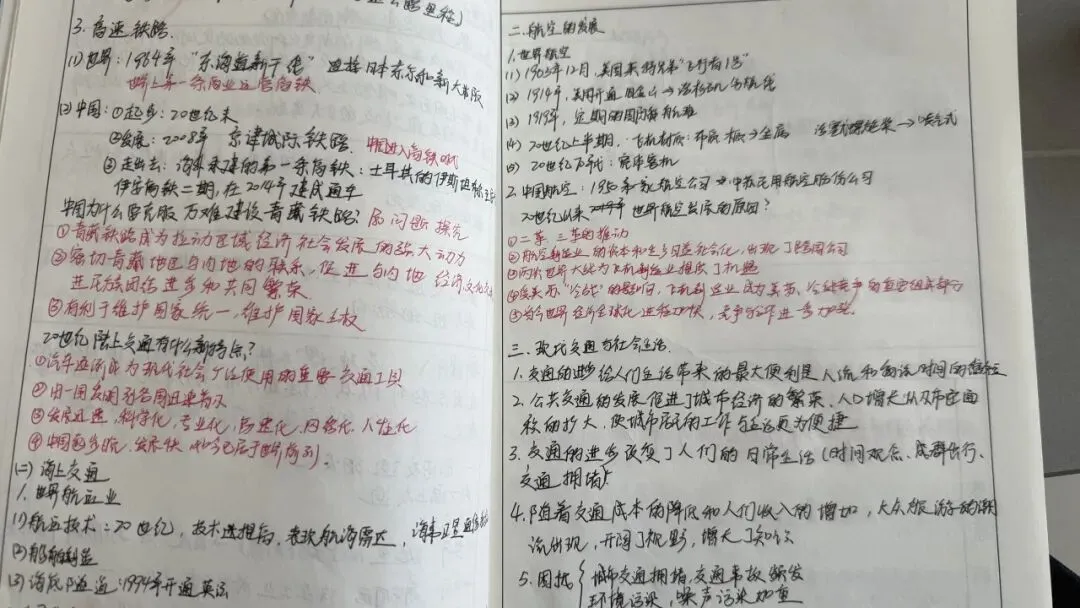 3. 高速铁路.
(1) 世界: 1964年 "东海道新干线" 连接日本东京和新大阪
世界上第一条商业运营高铁
(2) 中国: ①起步: 20世纪末
②发展: 2008年 京津城际铁路. 中国进入高铁时代
③走出去: 海外承建的第一条高铁: 土耳其的伊斯坦布尔
伊安高铁二期, 在2014年建成通车
中国为什么要克服万难建设青藏铁路? 属问题探究
①青藏铁路成为拉动区域经济社会发展的强大动力
②密切青藏地区与内地的联系, 促进与内地经济文化
进民族团结进步和共同繁荣.
③有利于维护国家统一, 维护国家主权
20世纪陆上交通有什么新特点?
①汽车逐渐成为现代社会广泛使用的重要交通工具
②由一国发明到各国迅速普及
③发展迅速, 科学化, 专业化, 高速化, 网络化, 人性化
④中国起步晚, 发展快, 如今已居于世界前列.
(二) 海上交通
1. 世界航运业
(1) 航运技术: 20世纪, 技术进推后, 海事卫星通信
(2) 船舶制造
(3) 海底隧道: 1994年开通英法
二. 航空的发展
1. 世界航空
(1) 1903年12月, 美国莱特兄弟 "飞行者1号"
(2) 1914年, 美国开通
(3) 1919年, 定期的国内
(4) 20世纪上半期, 飞机材质: 布质 木质→金属 活塞式螺旋桨→喷气式
(5) 20世纪五十年代: 客机
2. 中国航空: 1950年 航空公司→中苏民用航空股份公司
20世纪以来世界航空发展的原因?
①二革、三革的推动
②航空制造业的资本和生产日益社会化, 出现了跨国公司
③两次世界大战为飞机制造业提供了机遇
④受美苏 "冷战" 的影响, 飞机制造业成为美苏冷战竞争的重要组成部分
⑤当今世界经济全球化进程加快, 竞争合作进一步加强.
三. 现代交通与社会生活.
1. 交通的进步给人们生活带来的最大便利是人流和物流时间的缩短
2. 公共交通的发展促进了城市经济的繁荣、人口增长以及市区面
积的扩大, 使城市居民的工作与生活更为便捷
3. 交通的进步改变了人们的日常生活 (时间观念、成群出行、
交通拥堵)
4. 随着交通成本的降低和人们收入的增加, 大众旅游的潮
流出现, 开阔了视野, 增长了知识
5. 困扰 { 城市交通拥堵, 交通事故频发
环境污染, 噪声污染加重